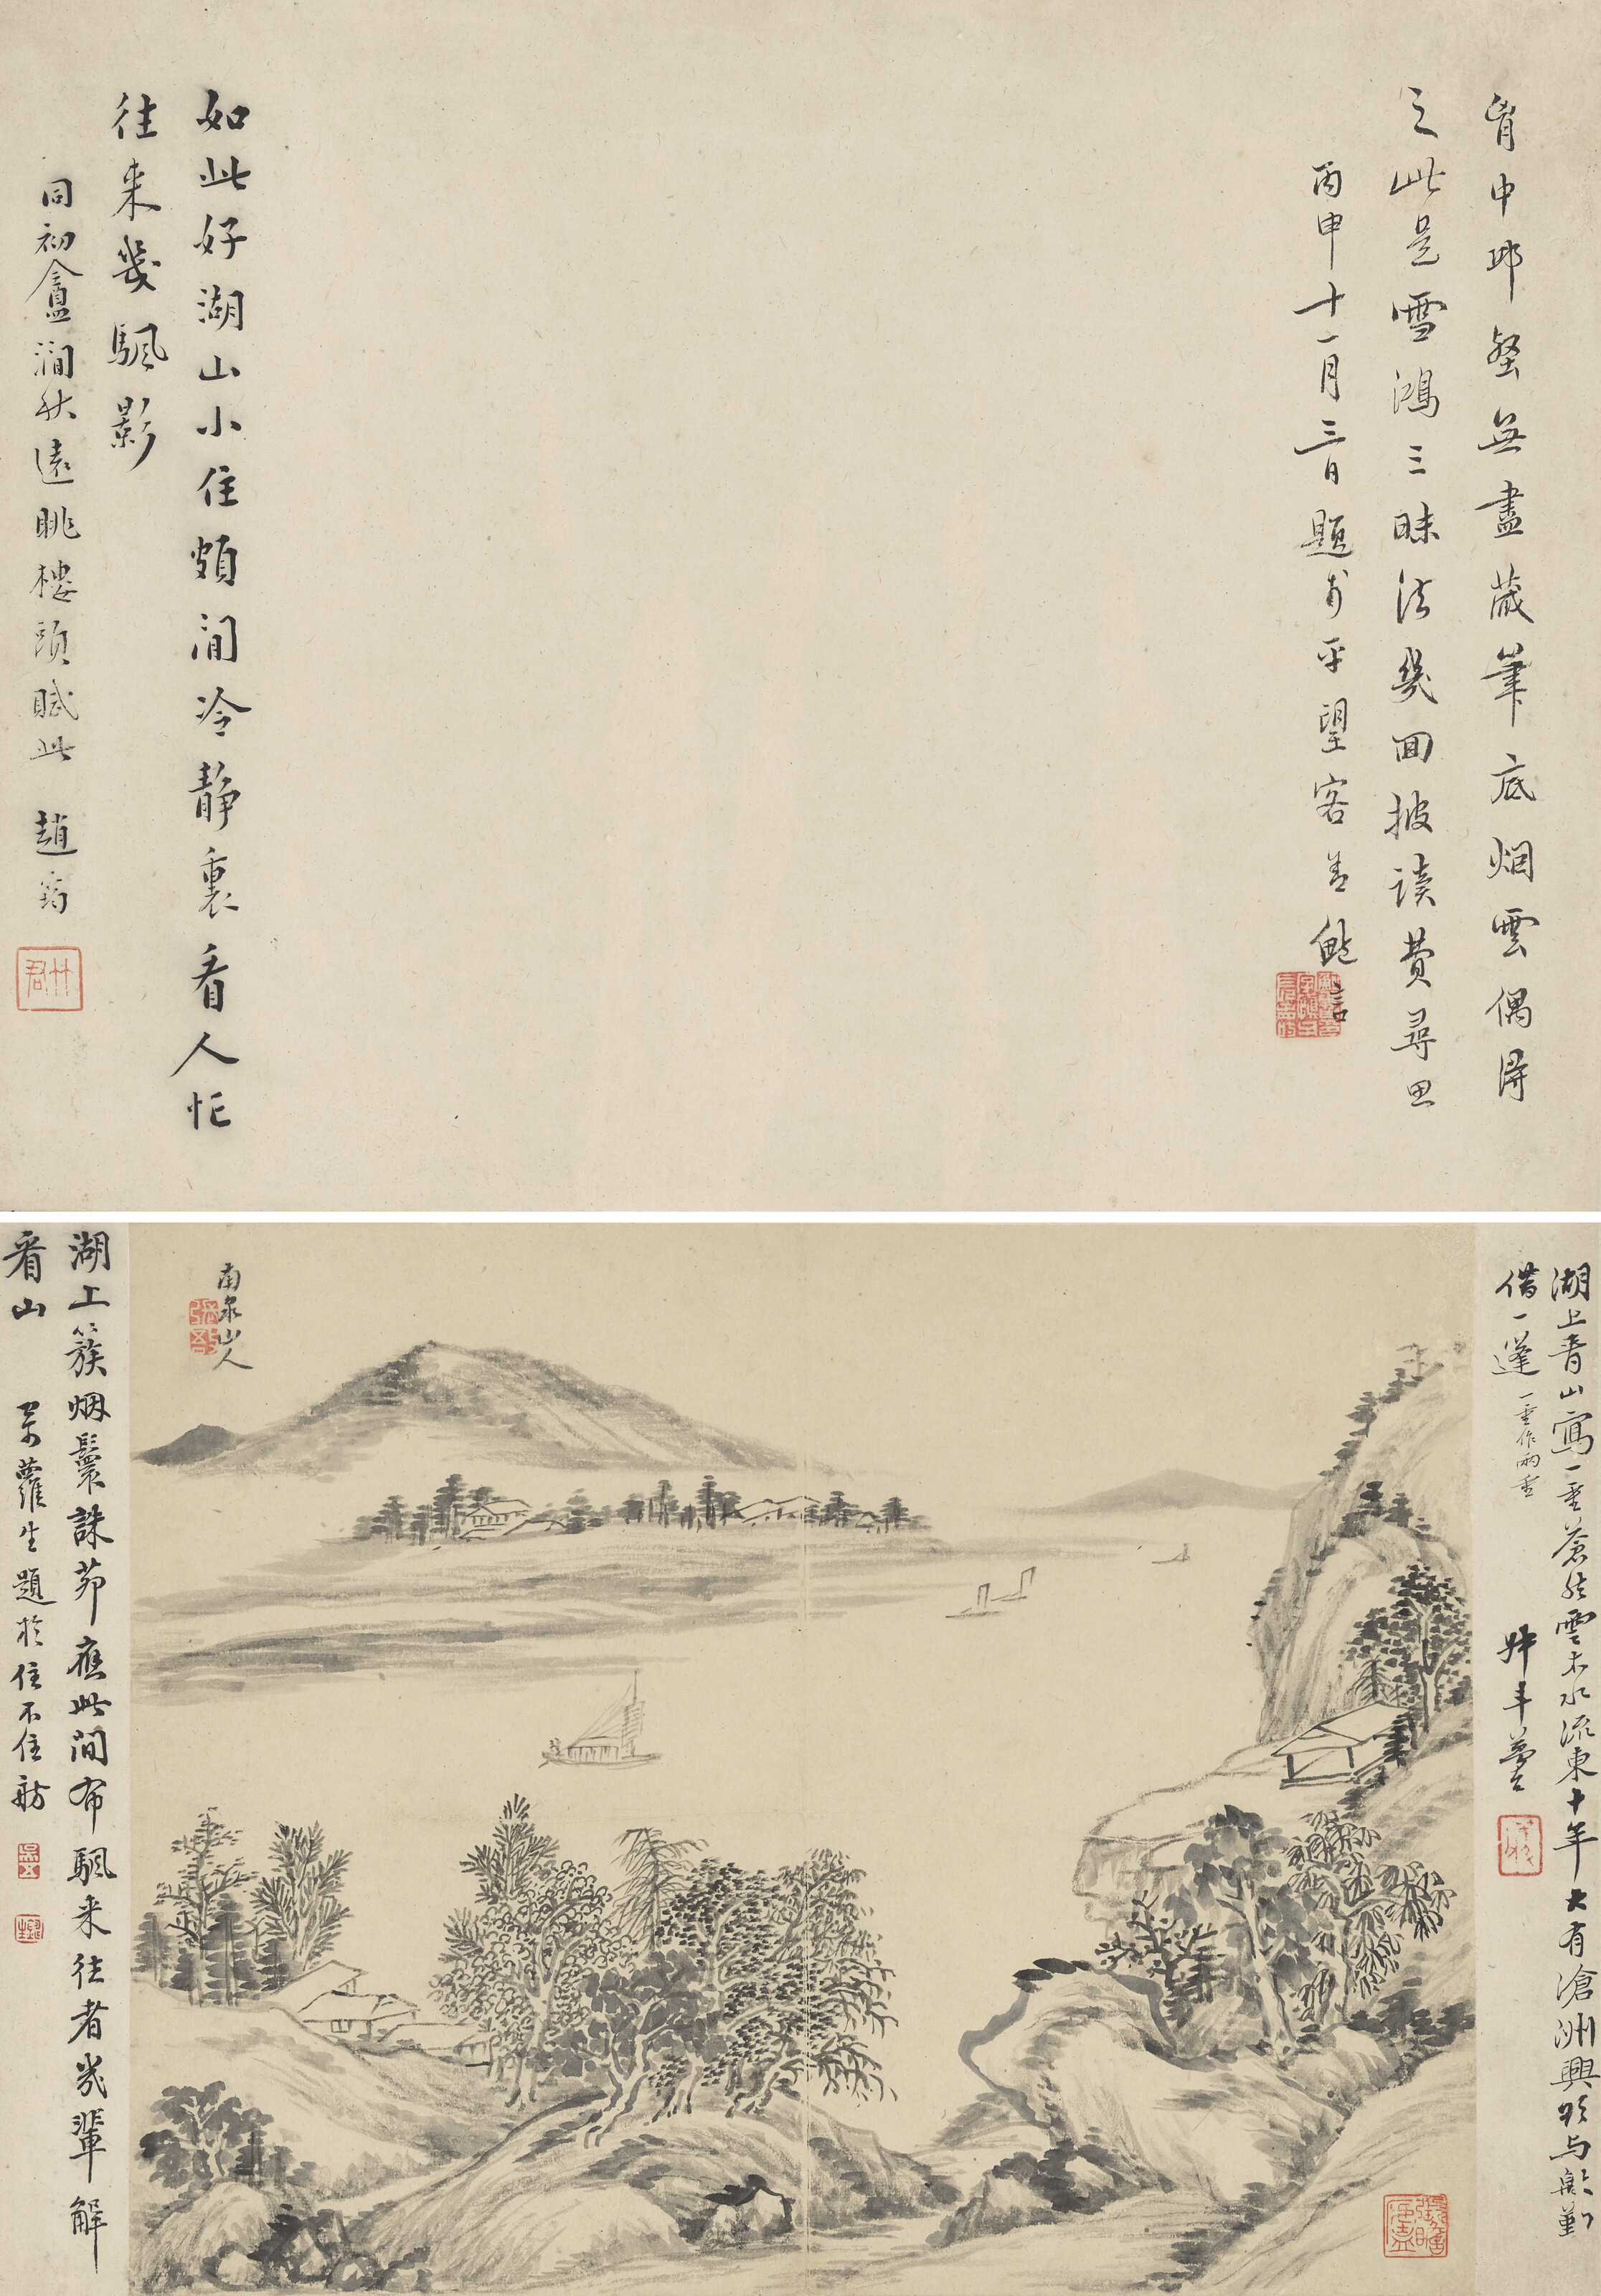 胷中邱壑無盡藏筆底烟雲偶得
之此是雪鴻三昧法幾回披讀費尋思
丙申十一月三日題於平望客舍 鮑言
如此好湖山小住頗閒冷靜裏看人忙
往来幾颿影
同初盦澗秋遠眺樓頭賦此 趙筠
竹君
湖上青山寫一重蒼然雲木水流東十年大有滄洲興水与
借一蓬 一重作兩重
南泉山人
湖上簇烟鬟誅茆應此間布颿来往者幾輩解
看山 蘿生題於住不住舫